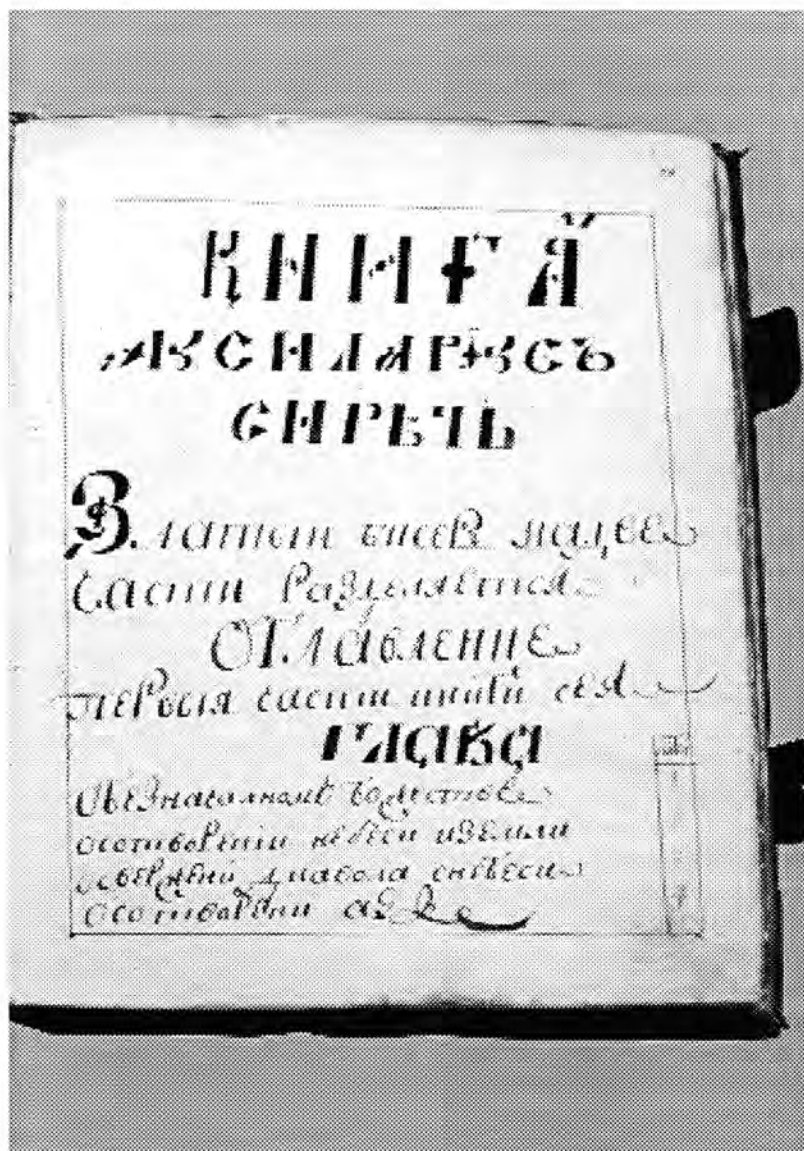 КНИГА
СИРѢЧЬ
Златый бисер
части разделяется
Оглавление
первыя части книги сея
глава
О безначалном божестве
о сотворении небеси и земли
о свержении диавола с небеси
о сотворении ада